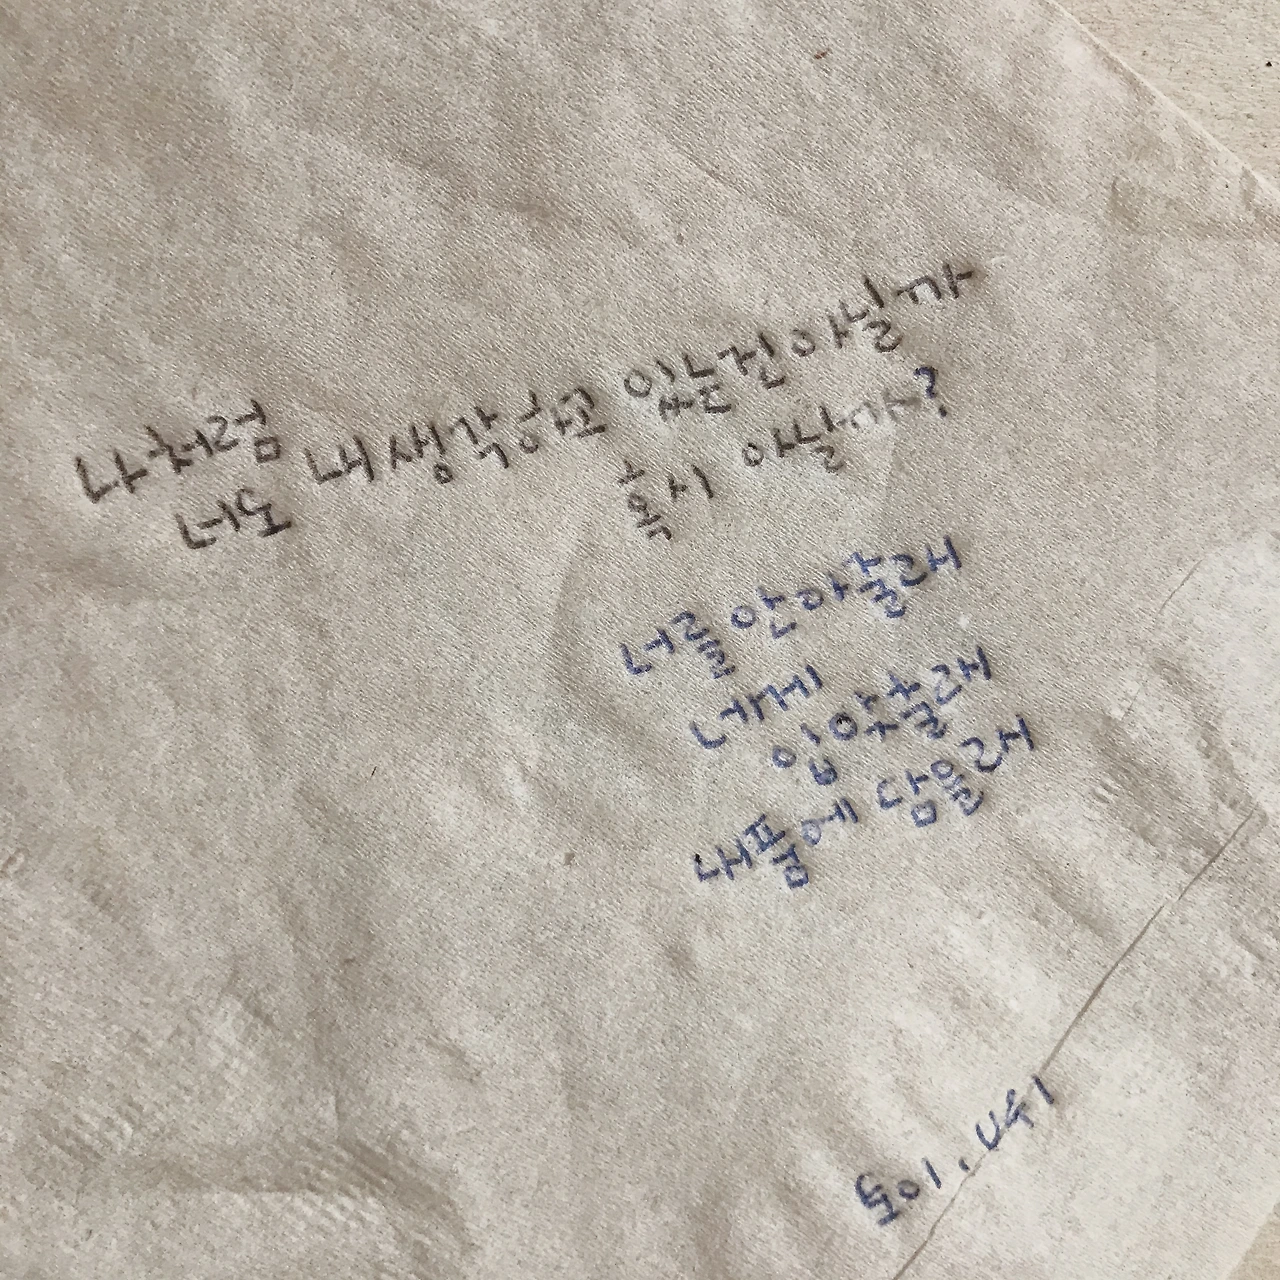 나처럼
너도 내 생각하고 있는건 아닐까
혹시 아닐까?
너를 안아줄래
너에게
입 맞출래
내 품에 담을래
토이. U뉘